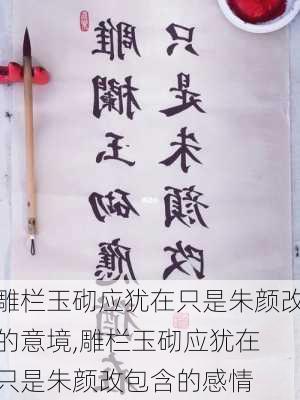 雕欄玉砌應猶在
只是朱顔改
雕栏玉砌应犹在只是朱颜改
的意境,雕栏玉砌应犹在
只是朱颜改包含的感情